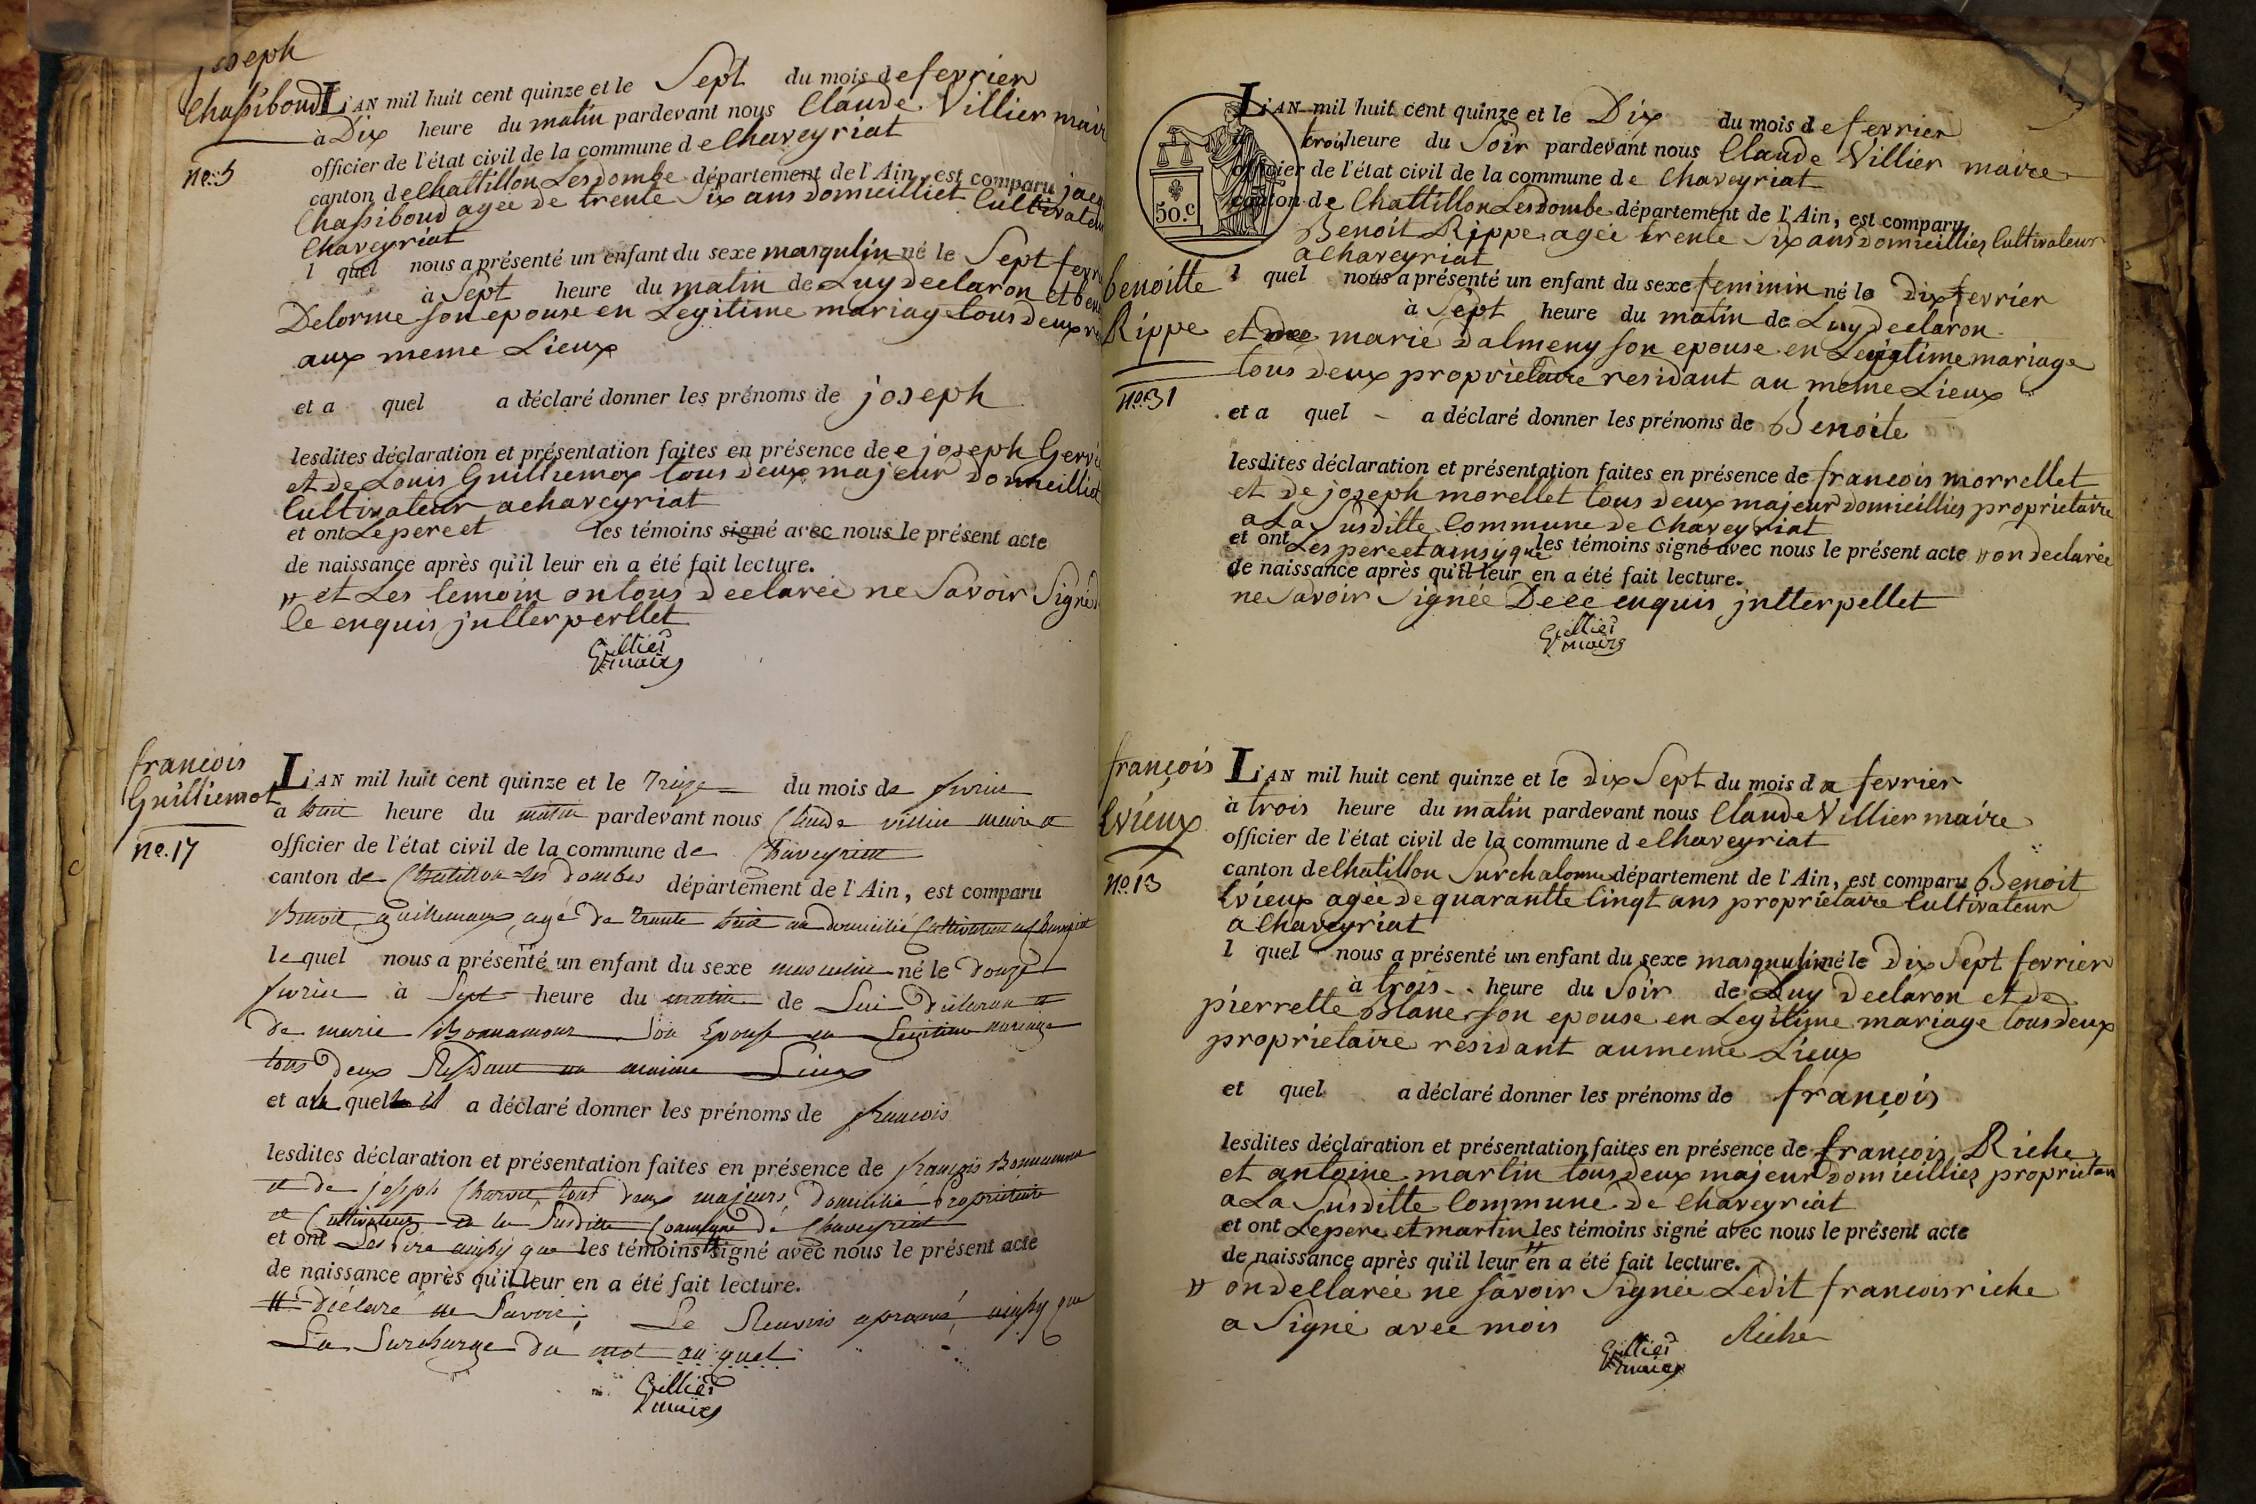 joseph
Chassiboud
no. 5
L'AN mil huit cent quinze et le Sept du mois de fevrier
à Dix heure du matin pardevant nous Claude Villier maire
officier de l'état civil de la commune de Chaveyriat
canton de Chattillon Les dombe département de l'Ain, est comparu
Chassiboud agee de trente Six ans domicilliet Cultivateur
Chaveyriat
l quel nous a présenté un enfant du sexe masqulin né le Sept
à Sept heure du matin de Luy declaron et
Delorme son epouse en Legitime mariage tous deux
aux meme Lieux
et a quel a déclaré donner les prénoms de joseph
lesdites déclaration et présentation faites en présence de e joseph
et de Louis Guilliemox tous deux majeur domeilliet
Cultivateur a chaveyriat
et ont Le pere et les témoins signé avec nous le présent acte
de naissance après qu'il leur en a été fait lecture.
et Les temoin on tous declareé ne Savoir Signé
Ce enquis jntterperllet
Villier
maire
francois
Guilliemot
no. 17
L'AN mil huit cent quinze et le Treize du mois de fevrier
à huit heure du matin pardevant nous Claude villier maire et
officier de l'état civil de la commune de Chaveyriat
canton de Chatillon les dombes département de l'Ain, est comparu
Benoit guillemaux, agé de trente huit an domicilié Cultivateur
le quel nous a présenté un enfant du sexe masculin né le douze
fevrier à Sept heure du matin de Lui déclarant et
de marie Bonnamour Son Epouse en Legitime mariage
tous deux Residant au meme Lieux
et au quel il a déclaré donner les prénoms de francois
lesdites déclaration et présentation faites en présence de françois Bonnamour
et de joseph tous deux majeurs, domicilié Propriétaire
et Cultivateur a la Susditte Commune de Chaveyriat
et ont Le Pere ainsy que les témoins signé avec nous le présent acte
de naissance après qu'il leur en a été fait lecture.
déclaré ne Savoir; Le Renvoi aprouvé, ainsy que
La Surcharge du mot au quel
Villier
maire
50.c
benoitte
Rippe
no. 31
L'AN mil huit cent quinze et le Dix du mois de fevrier
à trois heure du Soir pardevant nous Claude Villier maire
officier de l'état civil de la commune de Chaveyriat
canton de Chattillon Les dombe département de l'Ain, est comparu
Benoit Rippe agée trente Six ans domicilliez Cultivateur
a Chaveyriat
l quel nous a présenté un enfant du sexe feminin né le Dix fevrier
à Sept heure du matin de Luy declaron
et marie dalmeny son epouse en Legitime mariage
tous deux proprietaire residant au meme Lieux
et a quel a déclaré donner les prénoms de Benoite
lesdites déclaration et présentation faites en présence de françois morrellet
et de joseph morellet tous deux majeur domicilliez proprietaire
a La Susditte Commune de Chaveyriat
et ont Les pere et ainsy que les témoins signé avec nous le présent acte on declarée
de naissance après qu'il leur en a été fait lecture.
ne Savoir Signée enquis jntterpellet
Villier
maire
françois
Evieux
no. 13
L'AN mil huit cent quinze et le Dix Sept du mois de fevrier
à trois heure du matin pardevant nous Claude Villier maire
officier de l'état civil de la commune de Chaveyriat
canton de Chatillon Sur chalonne département de l'Ain, est comparu Benoit
Evieux agée de quarantte Cinqt ans proprietaire Cultivateur
a Chaveyriat
l quel nous a présenté un enfant du sexe masqulin né le Dix Sept fevrier
à trois heure du Soir de Luy declaron et de
pierrette Blanc son epouse en Legitime mariage tous deux
proprietaire residant au meme Lieux
et quel a déclaré donner les prénoms de françois
lesdites déclaration et présentation faites en présence de françois Riche
et antoine martin tous deux majeur domicilliez
a La Susditte Commune de Chaveyriat
et ont Le pere et martin les témoins signé avec nous le présent acte
de naissance après qu'il leur en a été fait lecture.
on dellarée ne savoir Signée Ledit francois riche
a Signé avec mois
Riche
Villier
maire